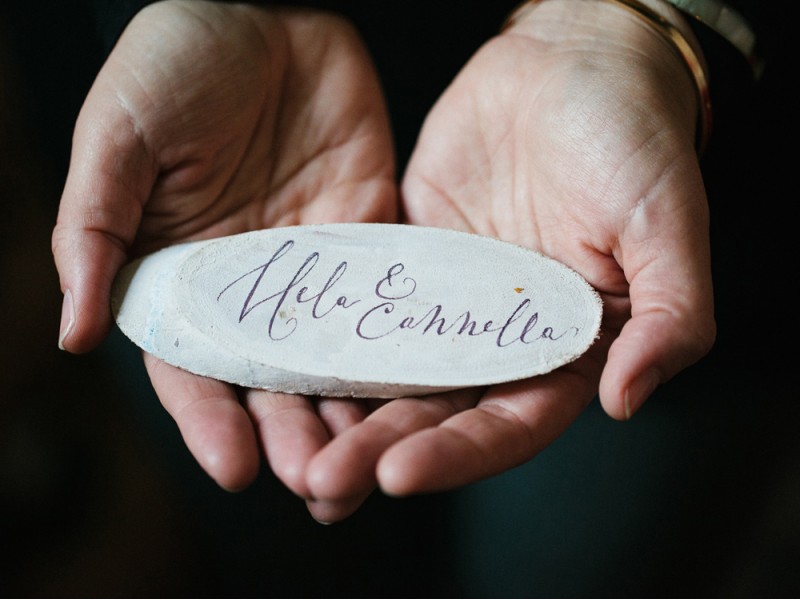 Hela &
Cannella